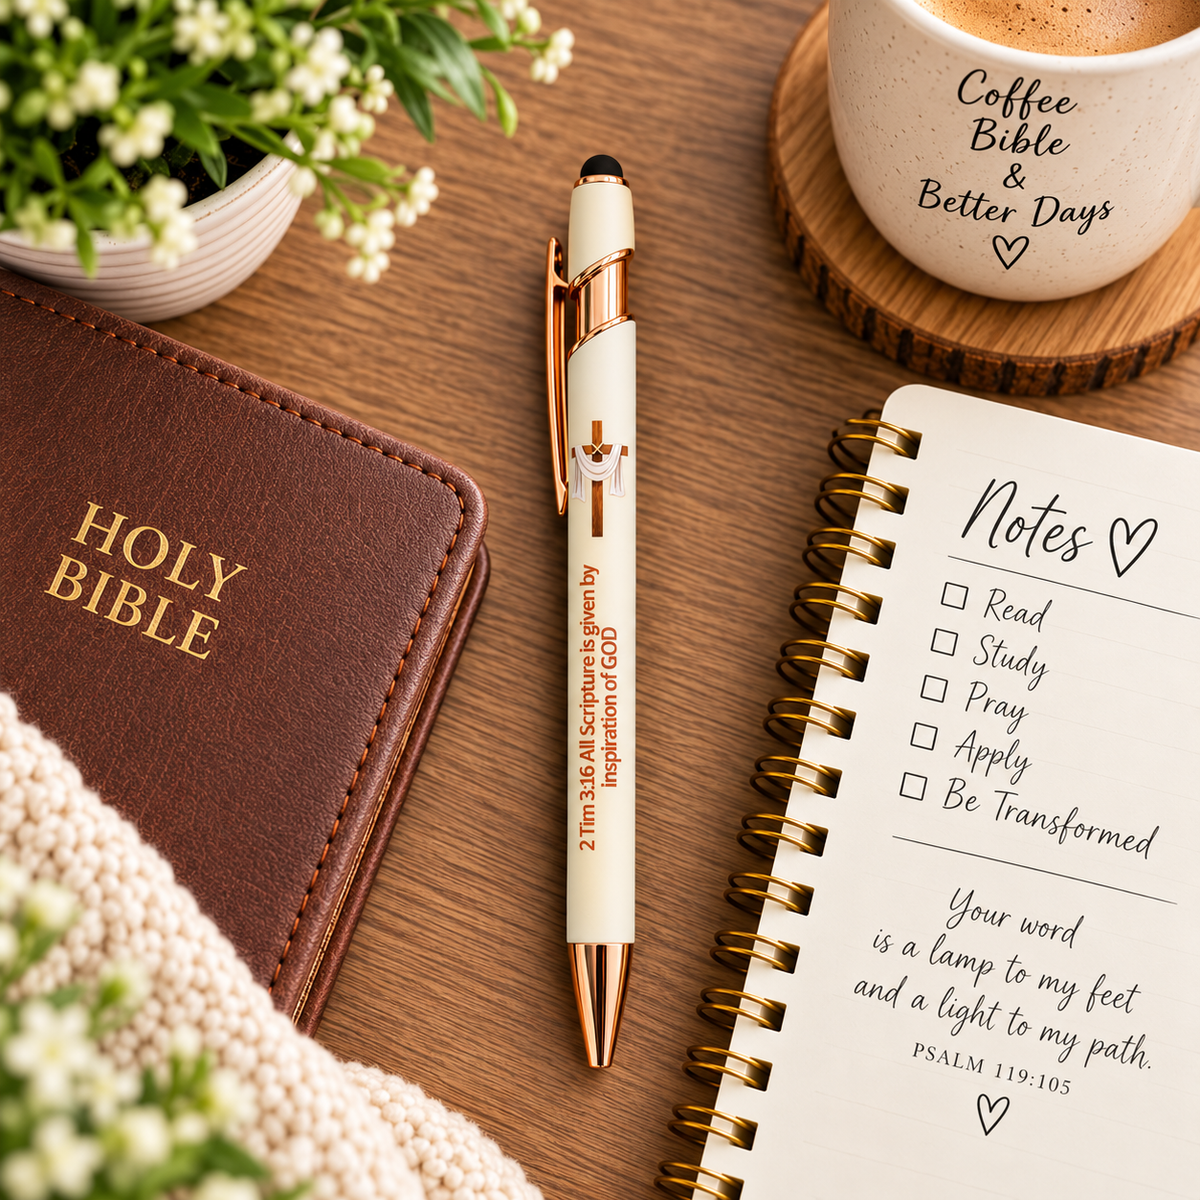 Coffee
Bible
&
Better Days
HOLY
BIBLE
2 Tim 3:16 All Scripture is given by
inspiration of GOD
Notes
Read
Study
Pray
Apply
Be Transformed
Your word
is a lamp to my feet
and a light to my path.
PSALM 119:105